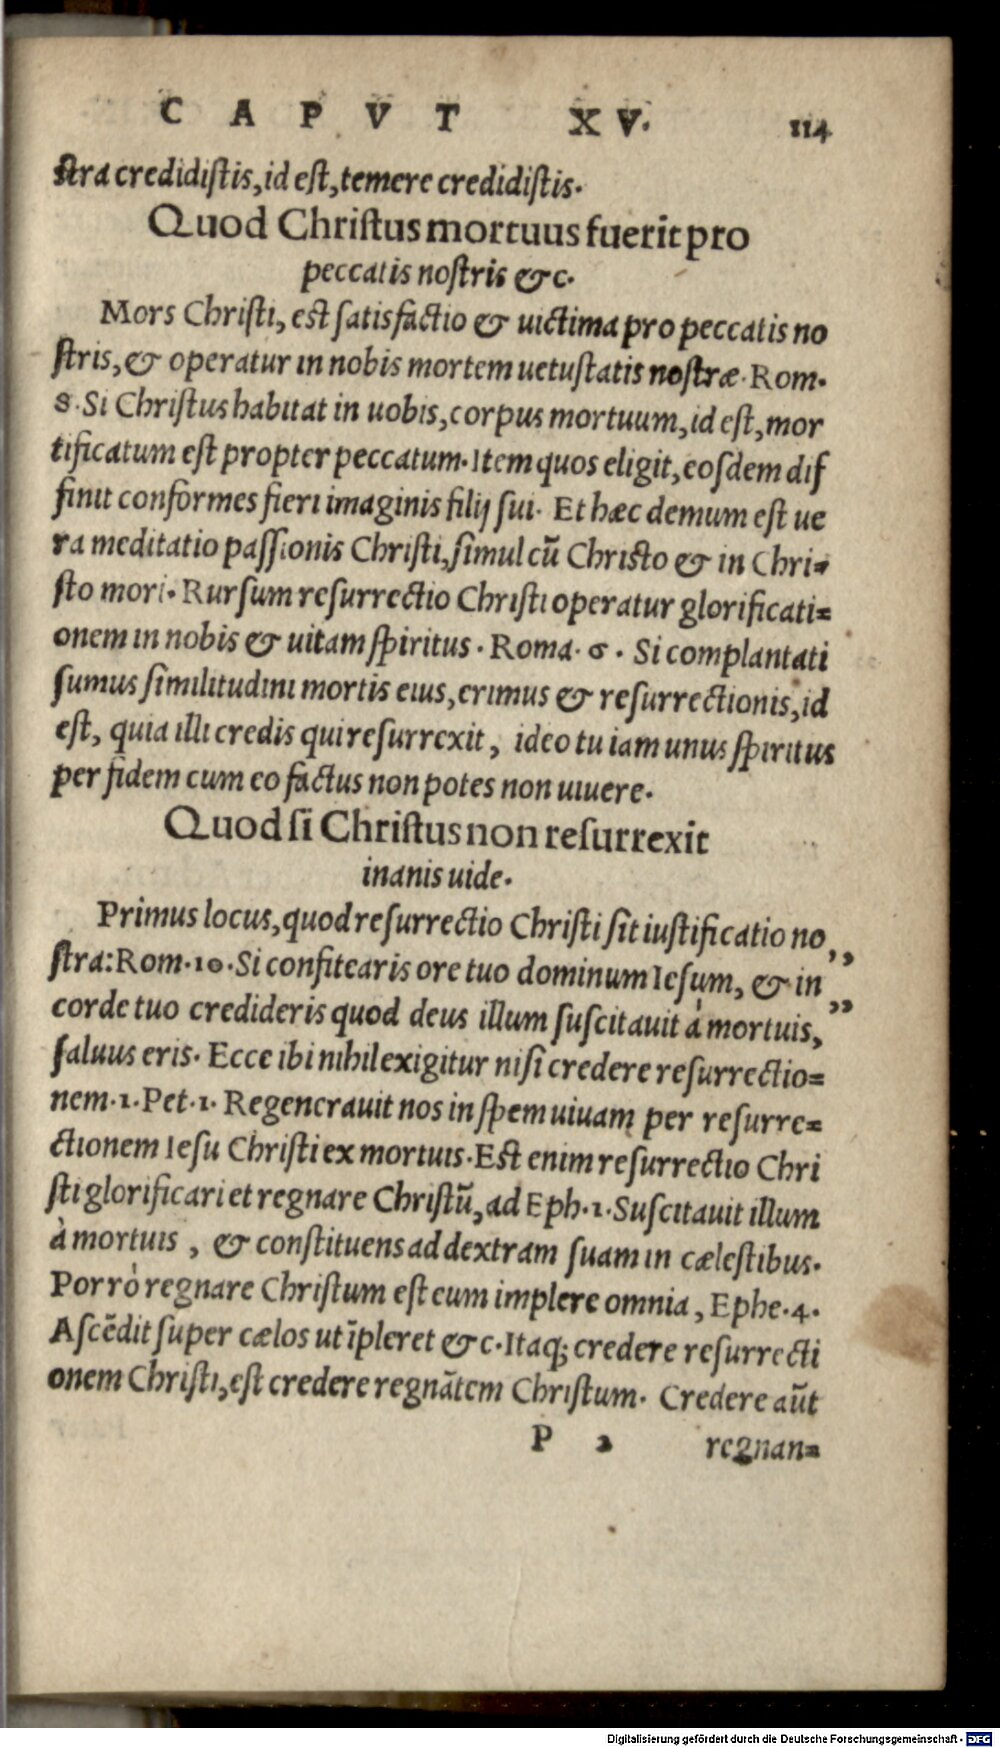 CAPVT XV. 114
ſtra credidiſtis, id eſt, temere credidiſtis.
Quod Chriſtus mortuus fuerit pro
peccatis noſtris &c.
Mors Chriſti, eſt ſatisfactio & uictima pro peccatis no
ſtris, & operatur in nobis mortem uetuſtatis noſtræ. Rom.
8. Si Chriſtus habitat in uobis, corpus mortuum, id eſt, mor
tificatum eſt propter peccatum. Item quos eligit, eoſdem dif
finit conformes fieri imaginis filij ſui. Et hæc demum eſt ue
ra meditatio paſſionis Chriſti, ſimul cū Chriſto & in Chri-
ſto mori. Rurſum reſurrectio Chriſti operatur glorificati-
onem in nobis & uitam ſpiritus. Roma. 6. Si complantati
ſumus ſimilitudini mortis eius, erimus & reſurrectionis, id
eſt, quia illi credis qui reſurrexit, ideo tu iam unus ſpiritus
per fidem cum eo factus non potes non uiuere.
Quod ſi Chriſtus non reſurrexit
inanis uide.
Primus locus, quod reſurrectio Chriſti ſit iuſtificatio no
ſtra: Rom. 10. Si confitearis ore tuo dominum Ieſum, & in ,,
corde tuo credideris quod deus illum ſuſcitauit à mortuis, ,,
ſaluus eris. Ecce ibi nihil exigitur niſi credere reſurrectio-
nem. 1. Pet. 1. Regenerauit nos in ſpem uiuam per reſurre-
ctionem Ieſu Chriſti ex mortuis. Eſt enim reſurrectio Chri
ſti glorificari et regnare Chriſtū, ad Eph. 1. Suſcitauit illum
à mortuis, & conſtituens ad dextram ſuam in cæleſtibus.
Porrò regnare Chriſtum eſt eum implere omnia, Ephe. 4.
Aſcēdit ſuper cælos ut īpleret &c. Itaq; credere reſurrecti
onem Chriſti, eſt credere regnātem Chriſtum. Credere aūt
P 2 regnan-
Digitalisierung gefördert durch die Deutsche Forschungsgemeinschaft - DFG